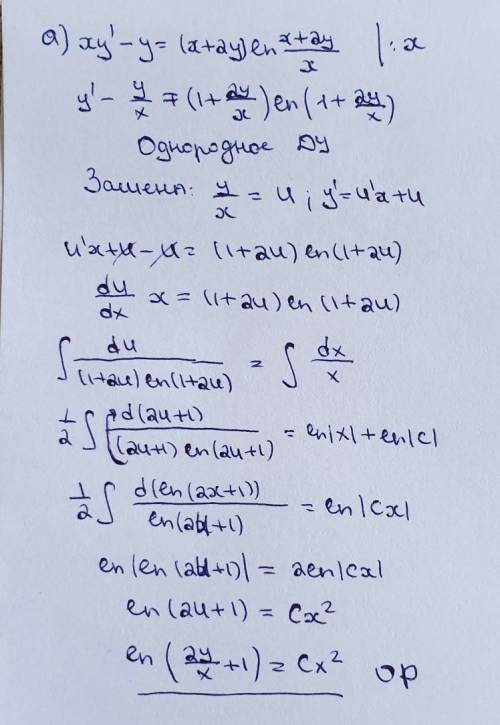 а) xy' - y = (x+2y) ln (x+2y)/x | : x
y' - y/x = (1 + 2y/x) ln (1 + 2y/x)
Однородное ДУ
Замена: y/x = u ; y' = u'x + u
u'x + u - u = (1+2u) ln (1+2u)
du/dx x = (1+2u) ln (1+2u)
∫ du/((1+2u) ln(1+2u)) = ∫ dx/x
1/2 ∫ d(2u+1)/((2u+1) ln(2u+1)) = ln|x| + ln|c|
1/2 ∫ d(ln(2x+1))/ln(2u+1) = ln|Cx|
ln|ln(2u+1)| = 2ln|Cx|
ln(2u+1) = Cx²
ln(2y/x + 1) = Cx² ОР